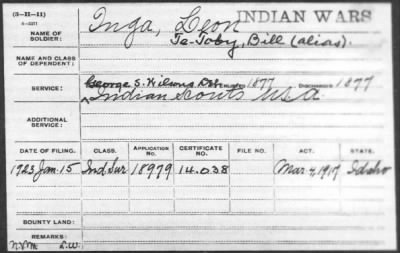 (3-II-11)
INDIAN WARS
NAME OF SOLDIER: Inga, Leon
Te-Toby, Bill (alias).
NAME AND CLASS OF DEPENDENT:
SERVICE: George S. Wilsons ENLISTED 1877 DISCHARGED 1877
Indian scouts USA
ADDITIONAL SERVICE:
DATE OF FILING. CLASS. APPLICATION NO. CERTIFICATE NO. FILE NO. ACT. STATE.
1923 Jan. 15 Ind Sur 18979 14.038 Mar. 4, 1917 Idaho
BOUNTY LAND:
REMARKS: